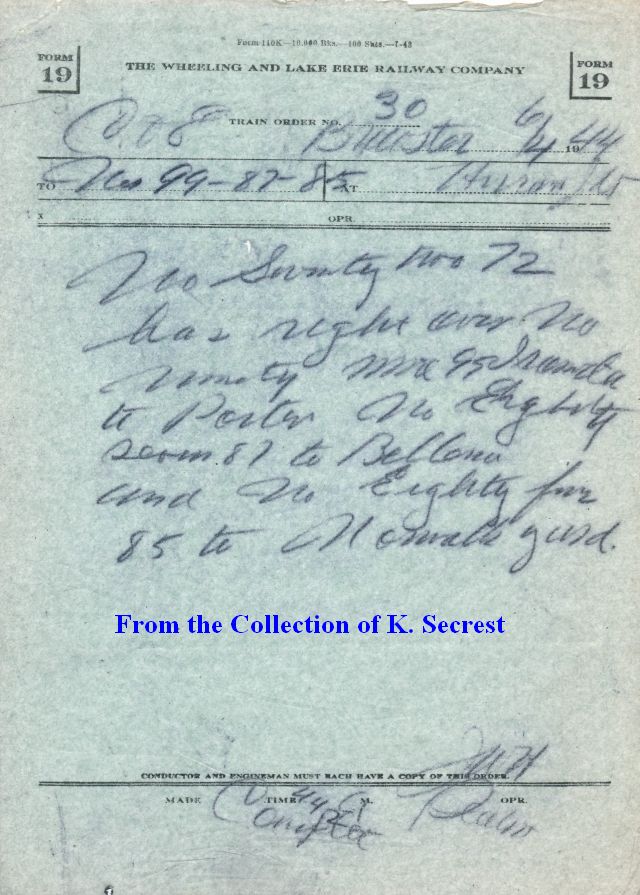 Form 110K—10,000 Bks.—100 Shts.—1-43
FORM 19
THE WHEELING AND LAKE ERIE RAILWAY COMPANY
FORM 19
TRAIN ORDER NO. 30
Brewster 6/4 1944
TO Nos 99-87-85 AT Huron Jct
X OPR.
No Seventy two 72
has right over No
ninety nine 99
to Porter No Eighty
seven 87 to Bellevue
and No Eighty five
85 to Norwalk yard.
From the Collection of K. Secrest
CONDUCTOR AND ENGINEMAN MUST EACH HAVE A COPY OF THIS ORDER.
MADE TIME M. OPR.